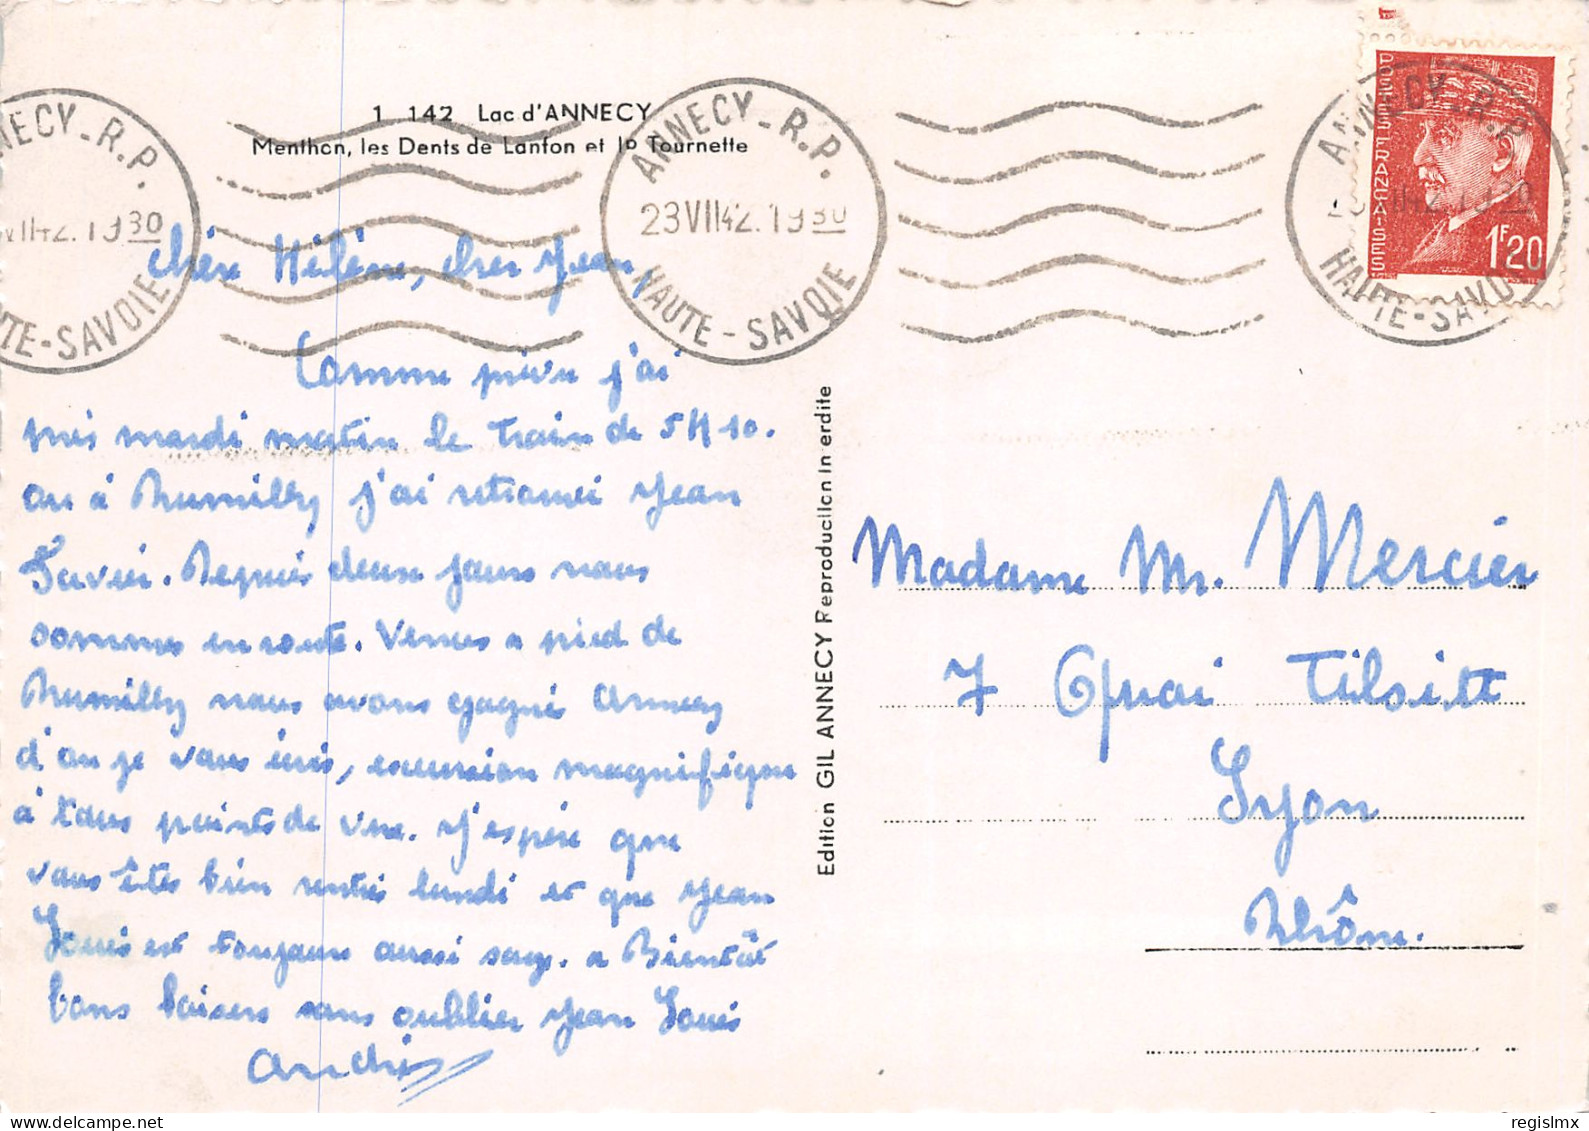 1 142 Lac d'ANNECY
Menthon, les Dents de Lanfon et la Tournette
ANNECY-R.P.
VII42.1930
HAUTE-SAVOIE
ANNECY-R.P.
23VII42.1930
HAUTE-SAVOIE
ANNECY-R.P.
VII42.1930
HAUTE-SAVOIE
POSTES FRANÇAISES
1F20
chère Hélène, cher Jean,
Comme prévu j'ai
pris mardi matin le train de 5H10.
ou à Rumilly j'ai retrouvé Jean
Xavier. Depuis deux jours nous
sommes en route. Venus a pied de
Rumilly nous avons gagné Annecy
d'ou je vous écris, excursion magnifique
à tous points de vue. J'espère que
vous êtes bien rentrés lundi et que Jean
Louis est toujours aussi sage. a Bientôt
bons baisers sans oublier Jean Louis
André
Edition GIL ANNECY Reproduction Interdite
Madame M. Mercier
7 Quai Tilsitt
Lyon
Rhône.
regislmx